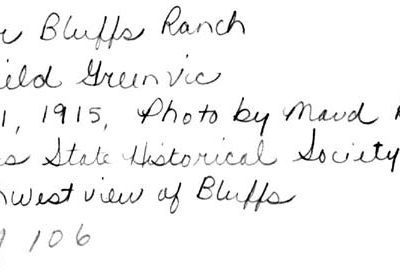 r Bluffs Ranch
ild Greenvic
1, 1915, Photo by Maud
s State Historical Society
west view of Bluffs
106